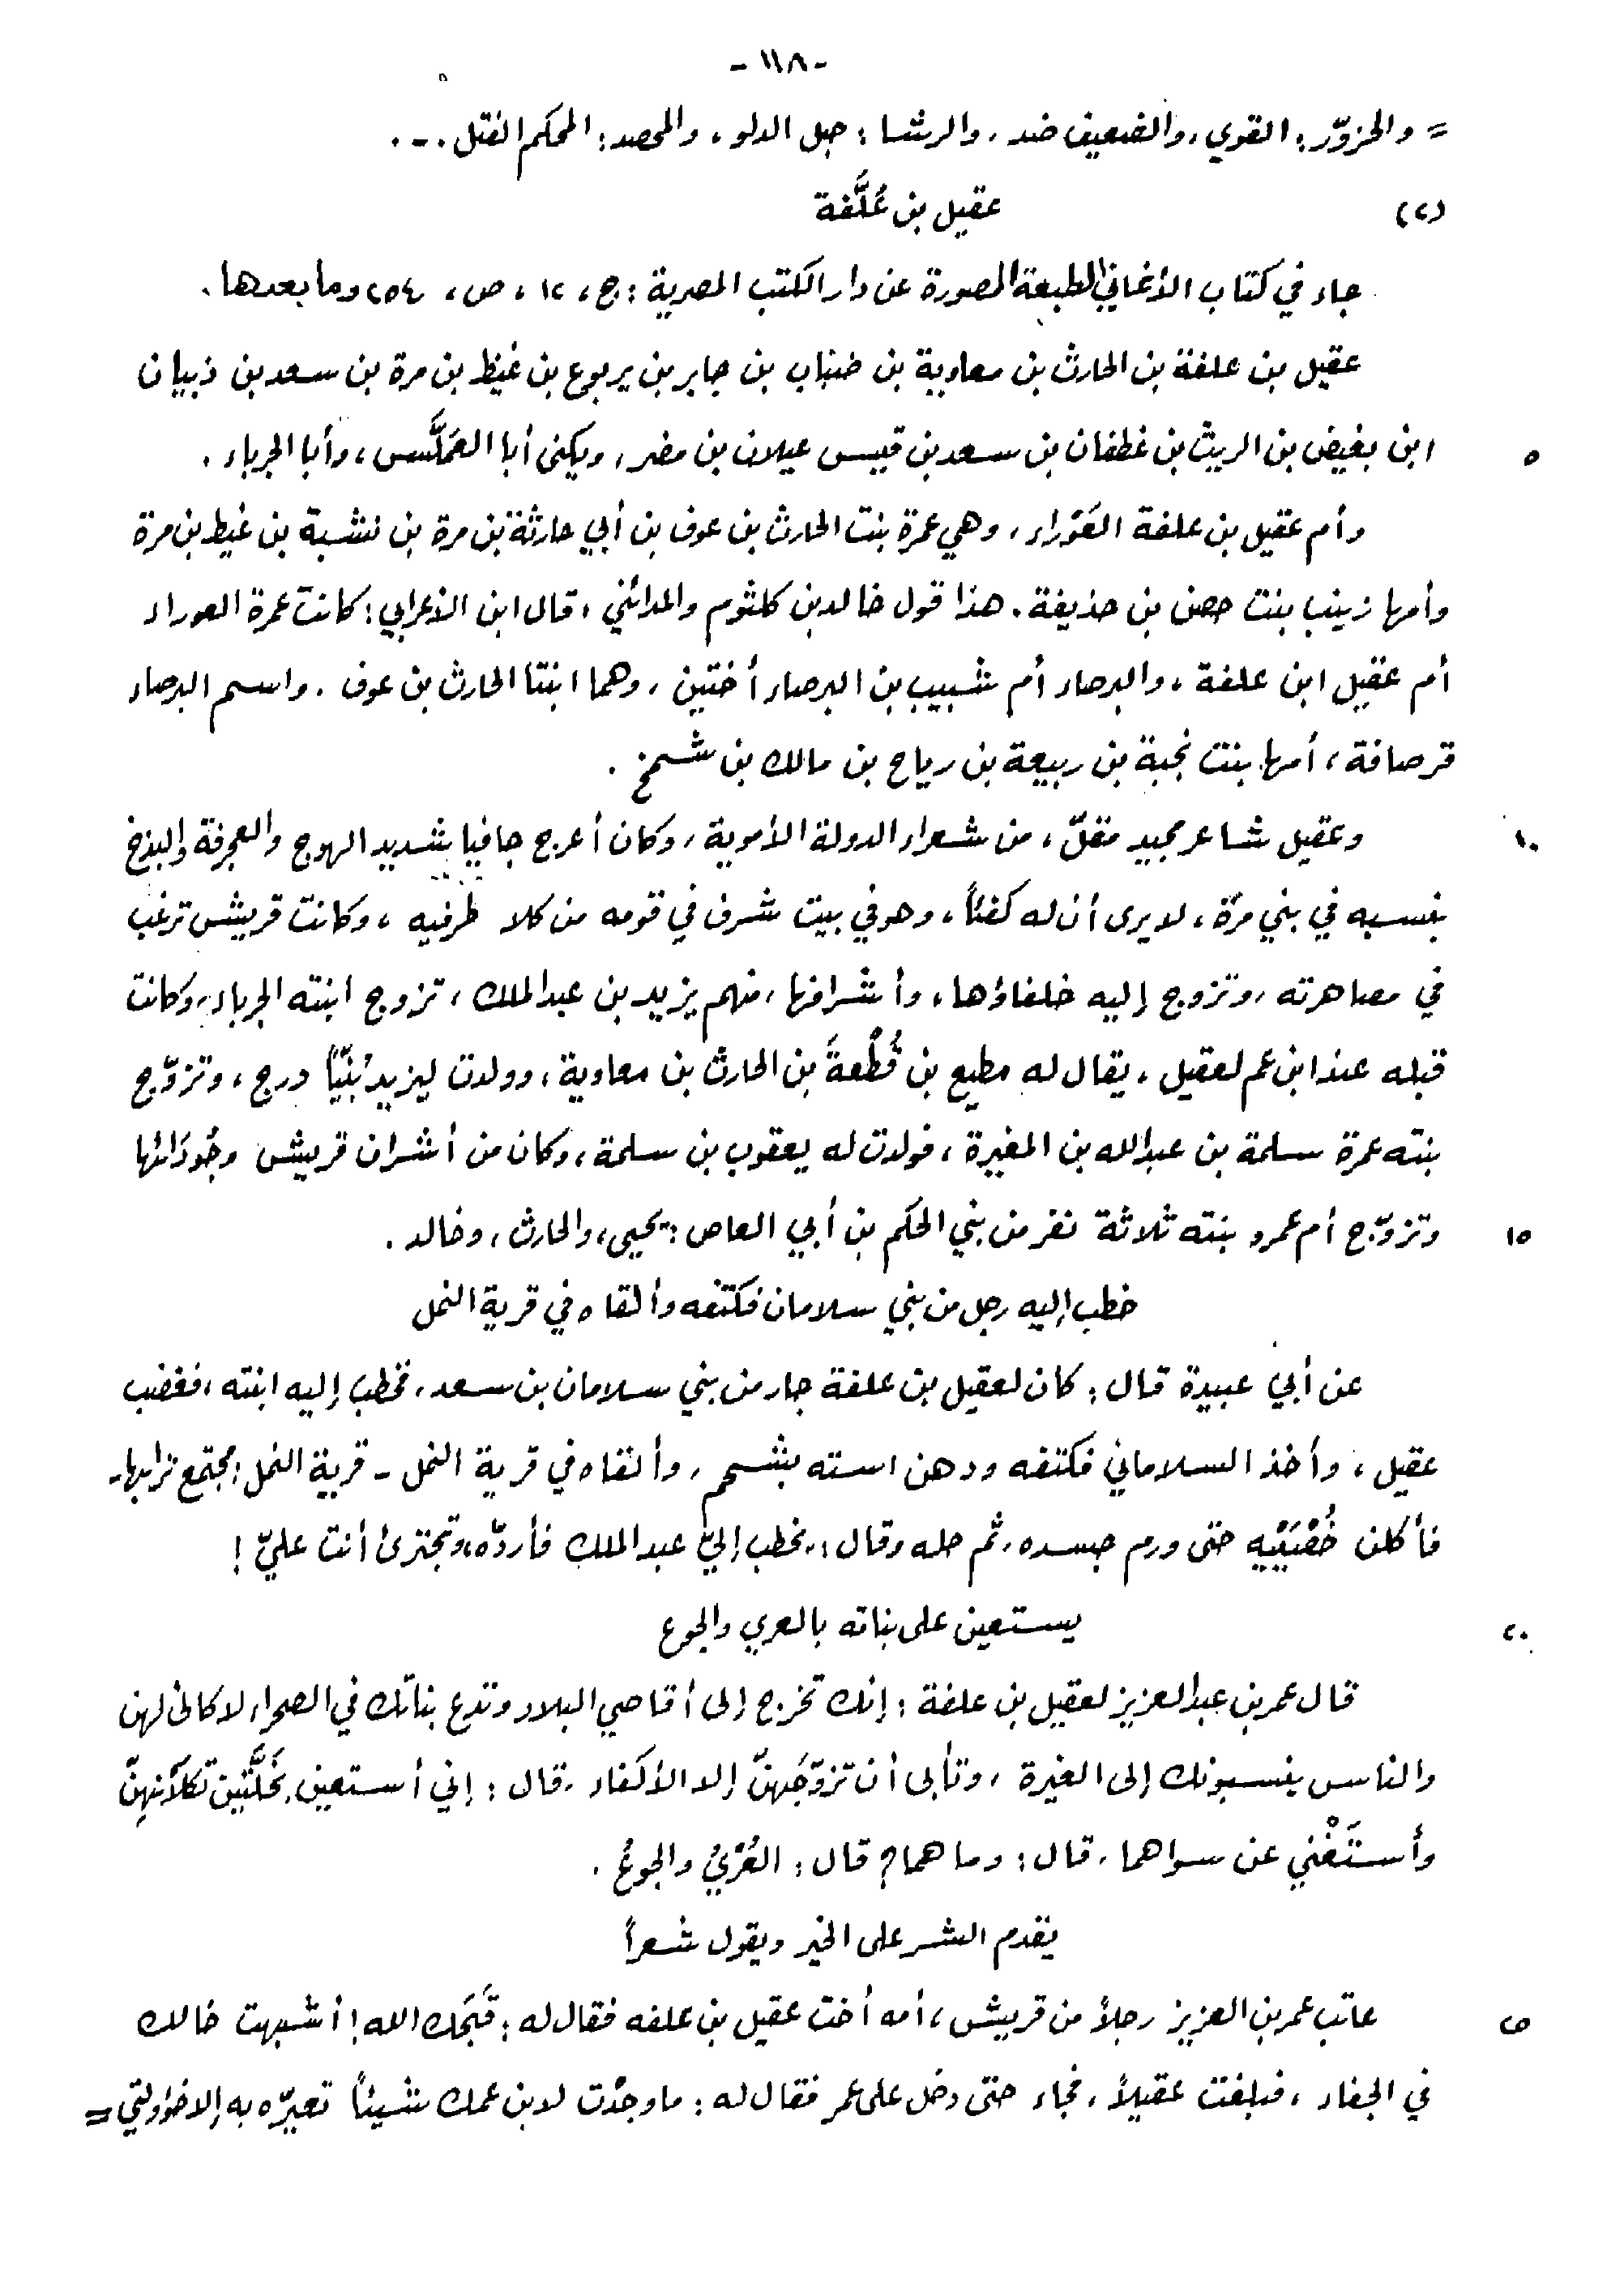 - ١١٨ -
= والحزوّر: القوي، والضعيف ضد، والرشا: حبل الدلو، والمحصد: المحكم الفتل .-.
(٢) عقيل بن عُلَّفة
جاء في كتاب الأغاني الطبعة المصورة عن دار الكتب المصرية: ج، ١٢، ص، ٢٥٤ وما بعدها.
عقيل بن علفة بن الحارث بن معاوية بن ضباب بن جابر بن يربوع بن غيظ بن مرة بن سعد بن ذبيان
٥ ابن بغيض بن الريث بن غطفان بن سعد بن قيس عيلان بن مضر، ويكنى أبا العَمَلَّس، وأبا الجرباء.
وأم عقيل بن علفة العَوْراء، وهي عمرة بنت الحارث بن عوف بن أبي حارثة بن مرة بن نشبة بن غيظ بن مرة
وأمها زينب بنت حصن بن حذيفة. هذا قول خالد بن كلثوم والمدائني، قال ابن الأعرابي: كانت عمرة العوراء
أم عقيل ابن علفة، والبرصاء أم شبيب بن البرصاء أختين، وهما ابنتا الحارث بن عوف. واسم البرصاء
قرصافة، أمها بنت نجبة بن ربيعة بن رياح بن مالك بن شمخ.
١٠ وعقيل شاعر مجيد مقلّ، من شعراء الدولة الأموية، وكان أعرج جافيا شديد الهوج والعجرفة والبذخ
بنسبه في بني مرّة، لا يرى أن له كفئاً، وهو في بيت شرف في قومه من كلا طرفيه، وكانت قريش ترغب
في مصاهرته، وتزوج إليه خلفاؤها، وأشرافها، منهم يزيد بن عبد الملك، تزوج ابنته الجرباء، وكانت
قبله عند ابن عم لعقيل، يقال له مطيع بن قُطْعةَ بن الحارث بن معاوية، وولدت ليزيد بُنَيّاً درج، وتزوّج
بنته عمرة سلمة بن عبدالله بن المغيرة، فولدت له يعقوب بن سلمة، وكان من أشراف قريش وجُودَائها
١٥ وتزوّج أم عمرو بنته ثلاثة نفر من بني الحكم بن أبي العاص: يحيى، والحارث، وخالد.
خطب إليه رجل من بني سلامان فكتفه وألقاه في قرية النمل
عن أبي عبيدة قال: كان لعقيل بن علفة جار من بني سلامان بن سعد، فخطب إليه ابنته، فغضب
عقيل، وأخذ السلاماني فكتفه ودهن استه بشحم، وألقاه في قرية النمل - قرية النمل: مجتمع ترابها -
فأكلن خُصْيَيْيه حتى ورم جسده، ثم حله وقال: يخطب إليّ عبد الملك فأردّه، وتجترئ أنت عليّ!
٢٠ يستعين على بناته بالعري والجوع
قال عمر بن عبد العزيز لعقيل بن علفة: إنك تخرج إلى أقاصي البلاد وتدع بناتك في الصحراء لا كالئ لهن
والناس ينسبونك إلى الغيرة، وتأبى أن تزوّجَهنّ إلا الأكفاء، قال: إني أستعين بخَلَّتين تكلآنهنّ
وأستَغْني عن سواهما، قال: وما هما؟ قال: العُرْيُ والجوعُ.
يقدم الشر على الخير ويقول شعراً
٢٥ عاتب عمر بن العزيز رجلاً من قريش، أمه أخت عقيل بن علفه فقال له: قَبَّحَك الله! أشبهت خالك
في الجفاء، فبلغت عقيلاً، فجاء حتى دخل على عمر فقال له: ما وجَدْت لابن عمك شيئاً تعيّره به إلا خؤولتي =